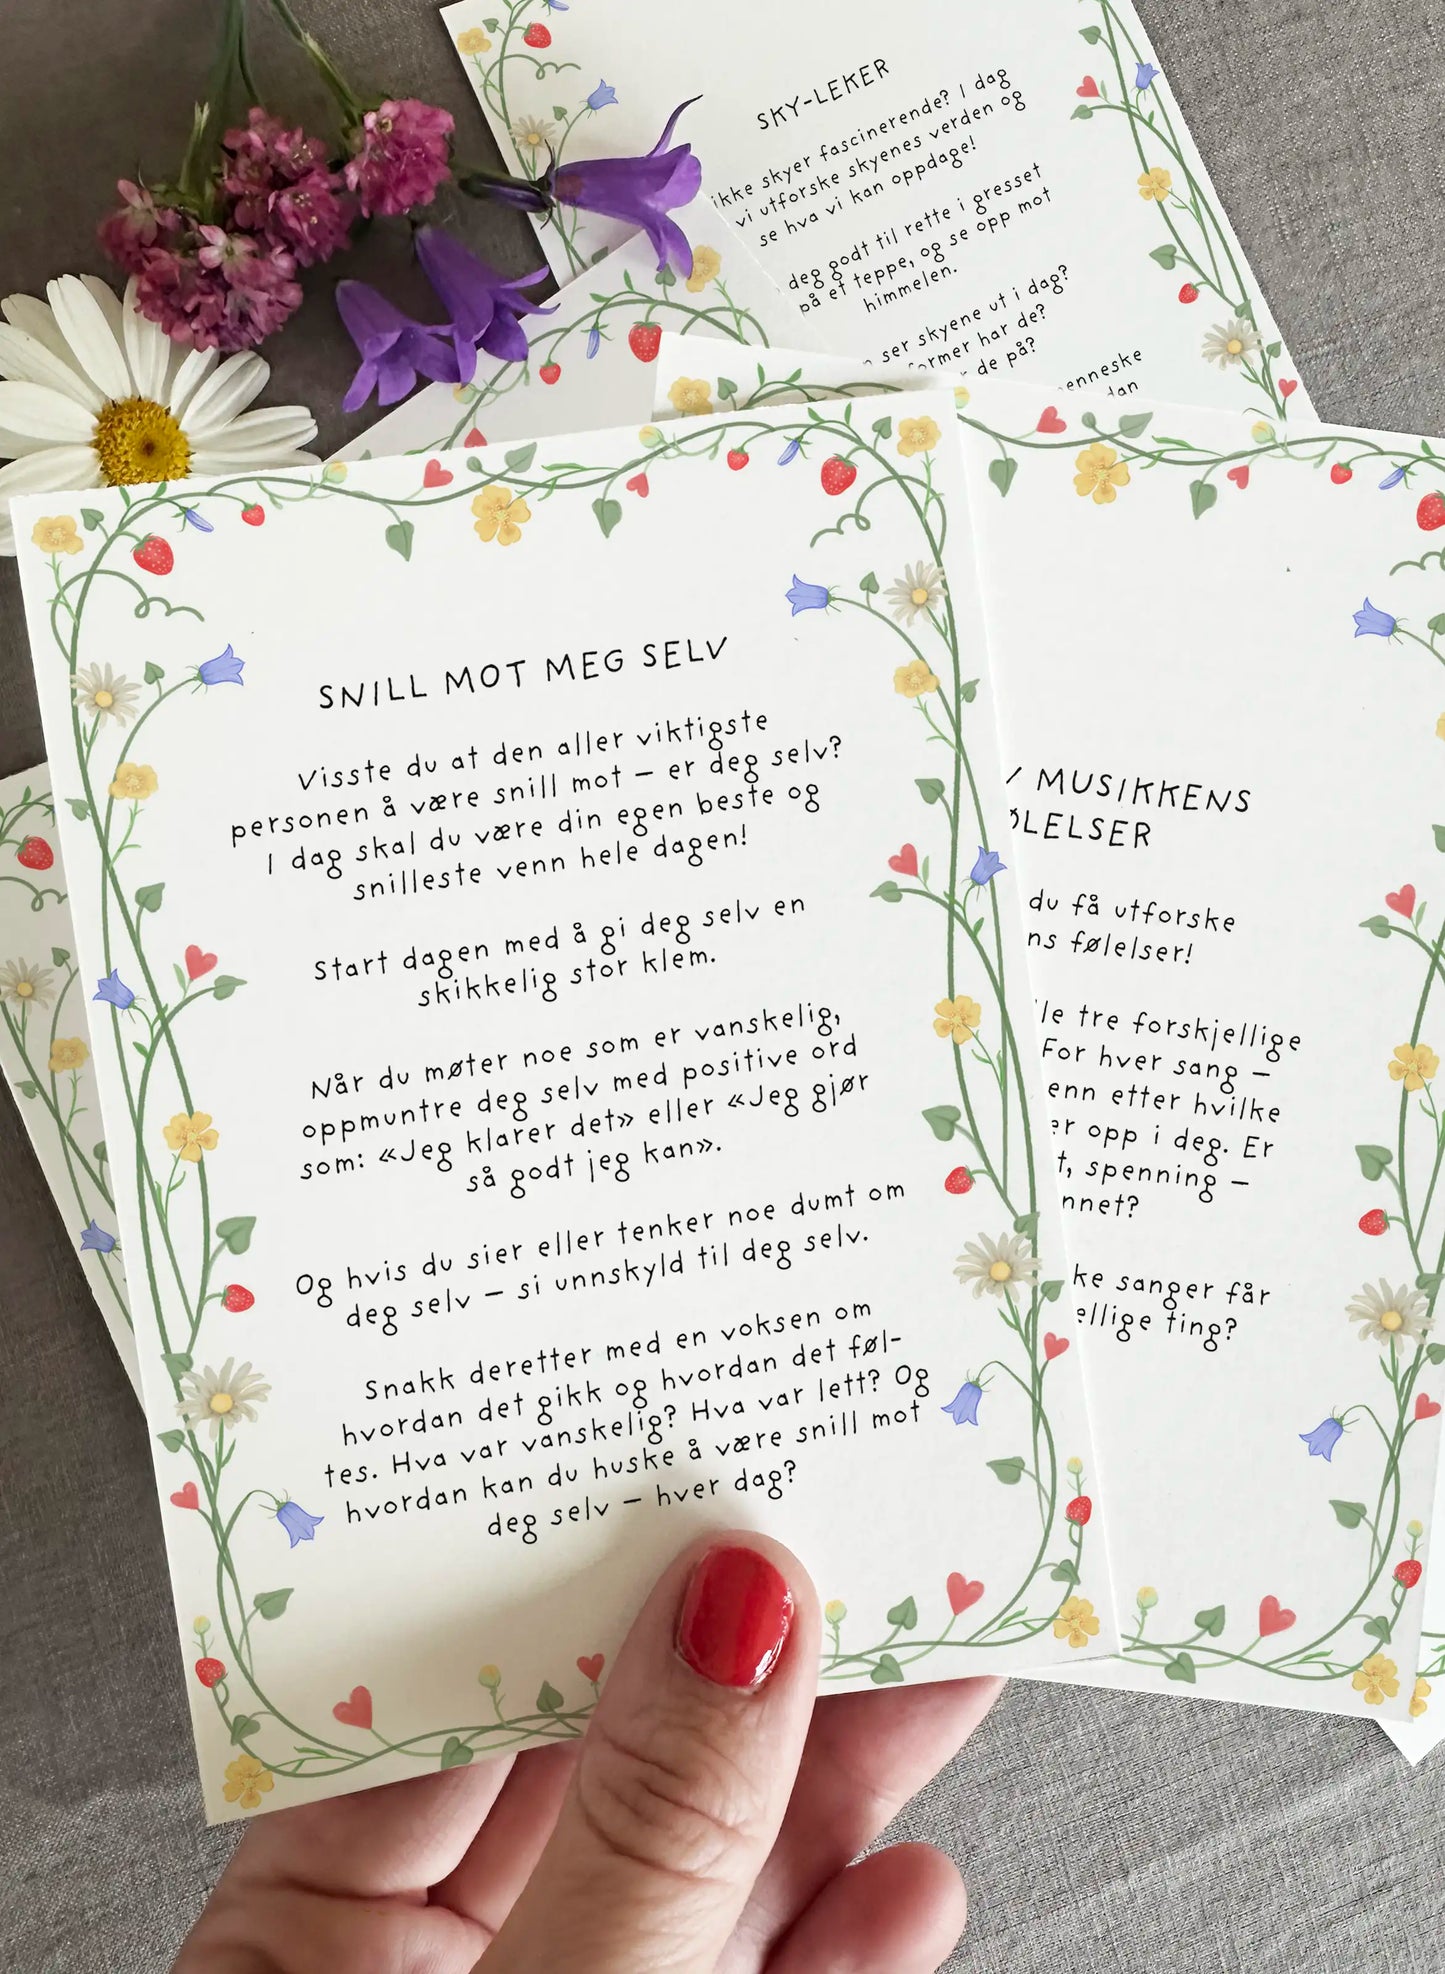 SKY-LEKER
ikke skyer fascinerende? I dag
vi utforske skyenes verden og
se hva vi kan oppdage!
deg godt til rette i gresset
på et teppe, og se opp mot
himmelen.
ser skyene ut i dag?
former har de?
de på?
menneske
SNILL MOT MEG SELV
Visste du at den aller viktigste
personen å være snill mot – er deg selv?
I dag skal du være din egen beste og
snilleste venn hele dagen!
Start dagen med å gi deg selv en
skikkelig stor klem.
Når du møter noe som er vanskelig,
oppmuntre deg selv med positive ord
som: «Jeg klarer det» eller «Jeg gjør
så godt jeg kan».
Og hvis du sier eller tenker noe dumt om
deg selv – si unnskyld til deg selv.
Snakk deretter med en voksen om
hvordan det gikk og hvordan det føl-
tes. Hva var vanskelig? Hva var lett? Og
hvordan kan du huske å være snill mot
deg selv – hver dag?
MUSIKKENS
ØLELSER
du få utforske
ns følelser!
le tre forskjellige
For hver sang –
enn etter hvilke
er opp i deg. Er
t, spenning –
nnet?
ke sanger får
ellige ting?